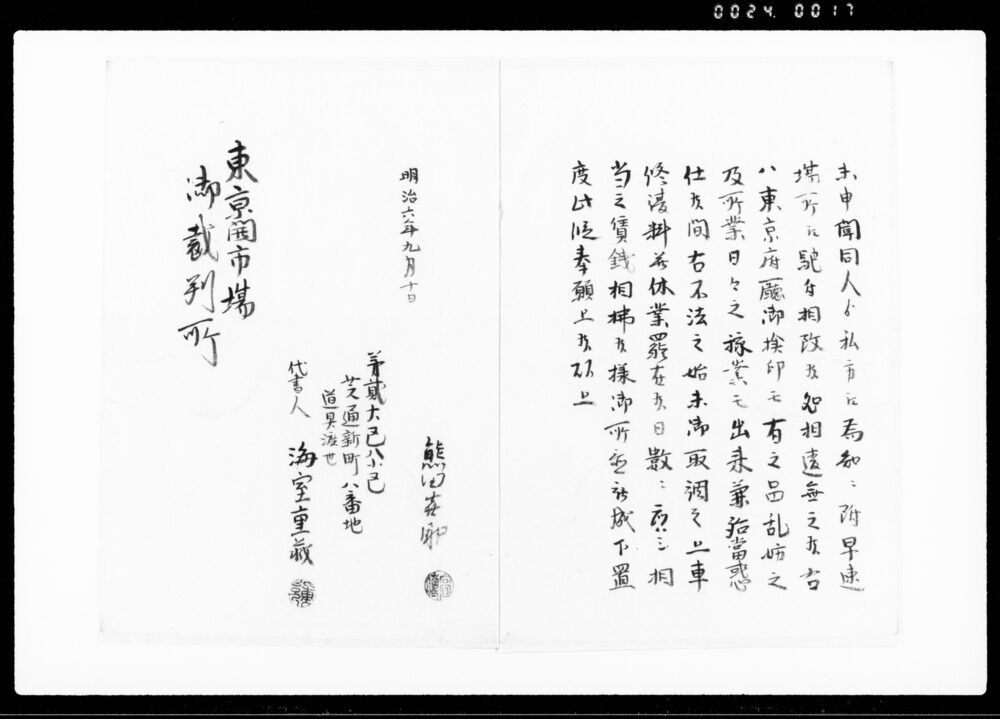 0024 0017
末申聞同人ゟ私方江為知ニ附早速
場所江馳付相改候処相違無之候右
八東京府廳御検印モ有之品乱妨之
及所業日々之稼業モ出来兼殆當惑
仕候間右不法之始末御取調之上車
修覆料并休業罷在候日數ニ應シ相
当之賃銭相拂候様御所置被成下置
度此段奉願上候以上
明治六年九月十日
熊田
第貳大区八小区
芝通新町八番地
道具渡世
代書人 海室重蔵
東京開市場
御裁判所